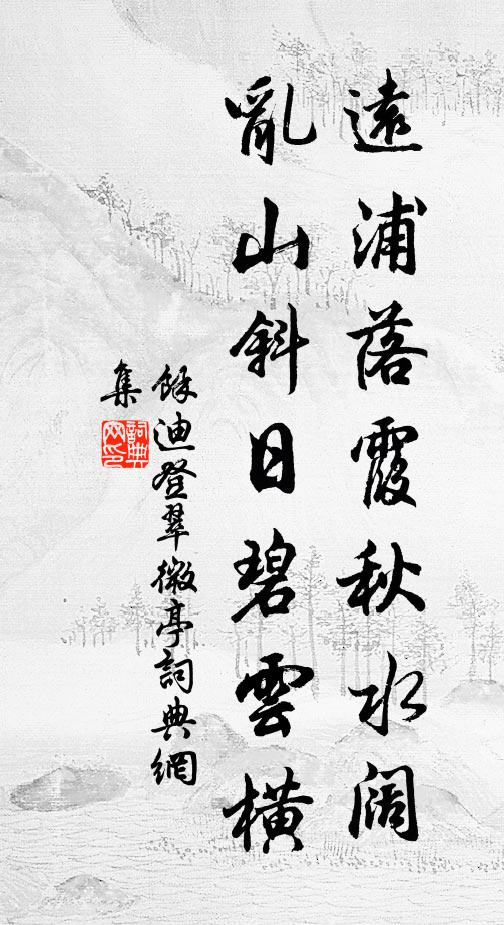 遠浦落霞秋水阔
亂山斜日碧雲橫
餘迪登翠微亭詞典網
集
詞典
网印